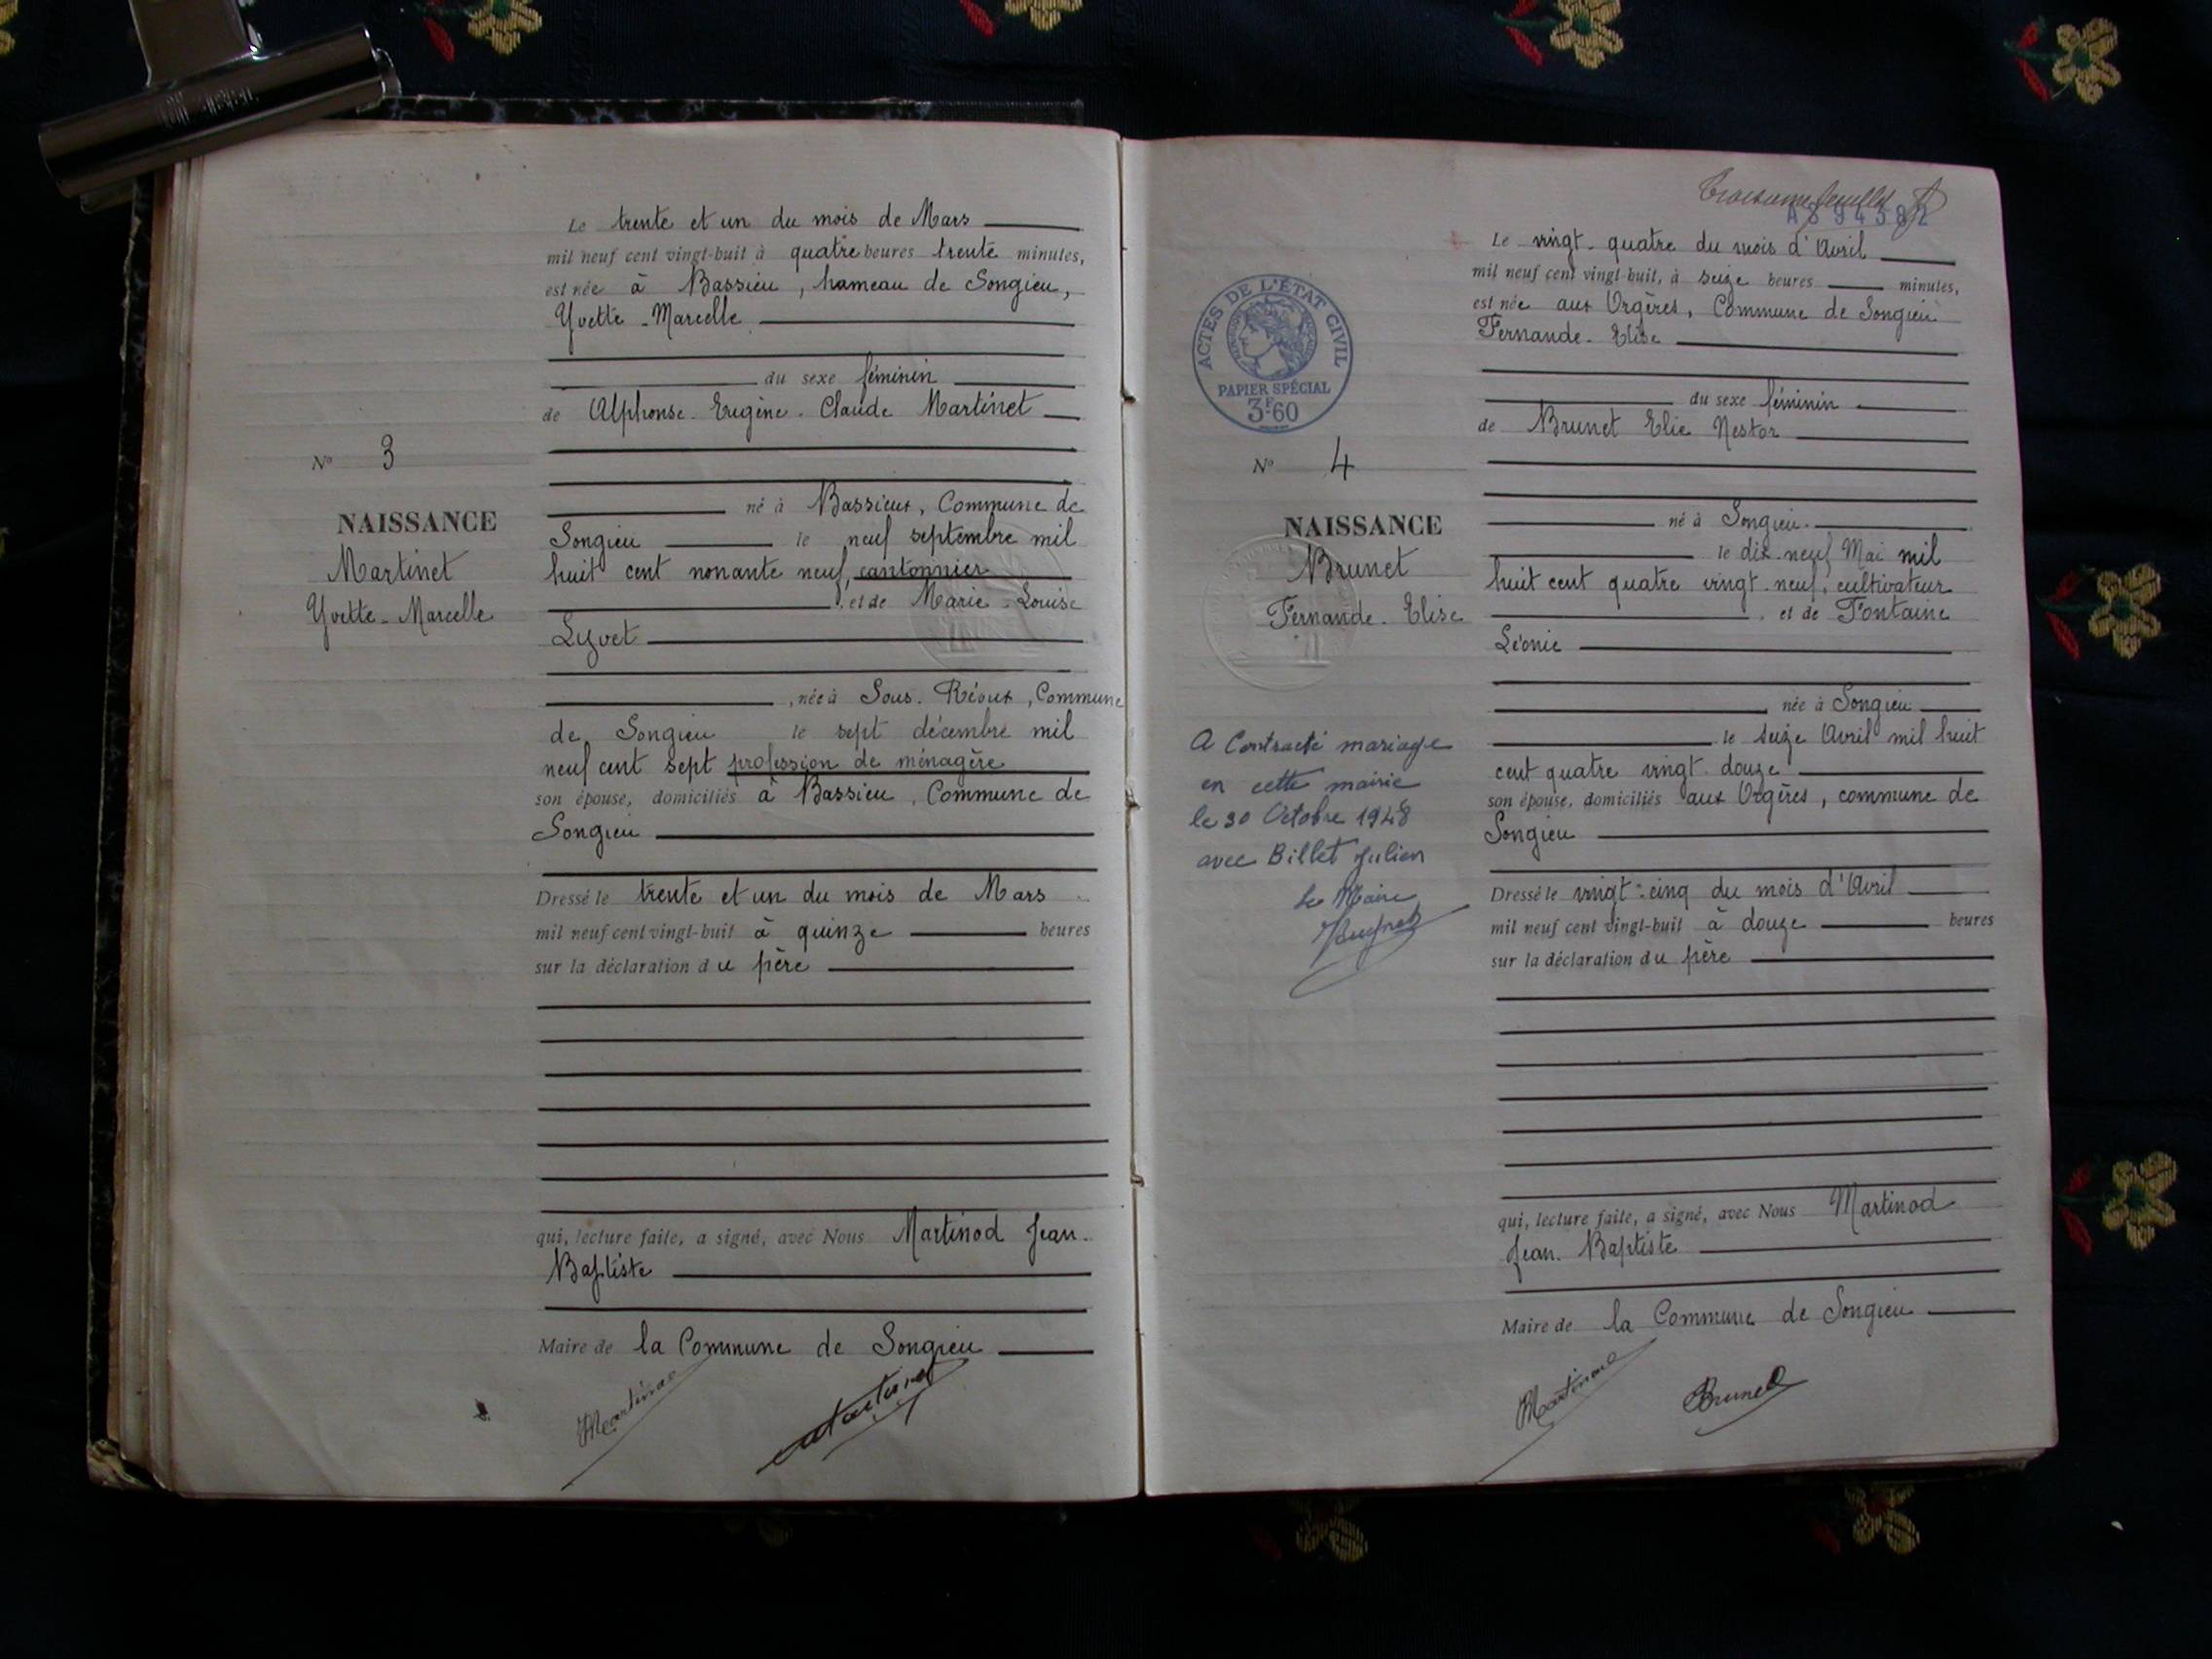 Le trente et un du mois de Mars
mil neuf cent vingt-huit à quatre heures trente minutes,
est née à Bassieu, hameau de Songieu,
Yvette-Marcelle
du sexe féminin
de Alphonse-Eugène-Claude Martinet
N° 3
né à Bassieux, Commune de
NAISSANCE
Songieu le neuf septembre mil
Martinet
huit cent nonante neuf, cantonnier
Yvette-Marcelle
, et de Marie-Louise
Lyvet
, née à Sous-Réoux, Commune
de Songieu le sept décembre mil
neuf cent sept profession de ménagère
son épouse, domiciliés à Bassieu, Commune de
Songieu
Dressé le trente et un du mois de Mars
mil neuf cent vingt-huit à quinze heures
sur la déclaration du père
qui, lecture faite, a signé, avec Nous Martinod Jean-
Baptiste
Maire de la Commune de Songieu
Martinod
Martinet
Troisième feuillet
Le vingt-quatre du mois d'Avril
mil neuf cent vingt-huit, à seize heures minutes,
est née aux Orgères, Commune de Songieu
Fernande-Elise
ACTES DE L'ÉTAT CIVIL
PAPIER SPÉCIAL
3F60
du sexe féminin
de Brunet Elie Nestor
N° 4
né à Songieu
NAISSANCE
le dix-neuf Mai mil
Brunet
huit cent quatre vingt-neuf, cultivateur
Fernande-Elise
, et de Fontaine
Léonie
née à Songieu
le seize Avril mil huit
cent quatre vingt-douze
son épouse, domiciliés aux Orgères, commune de
Songieu
A Contracté mariage
en cette mairie
le 30 Octobre 1948
avec Billet Julien
Le Maire
Dressé le vingt-cinq du mois d'Avril
mil neuf cent vingt-huit à douze heures
sur la déclaration du père
qui, lecture faite, a signé, avec Nous Martinod
Jean-Baptiste
Maire de la Commune de Songieu
Martinod
Brunet